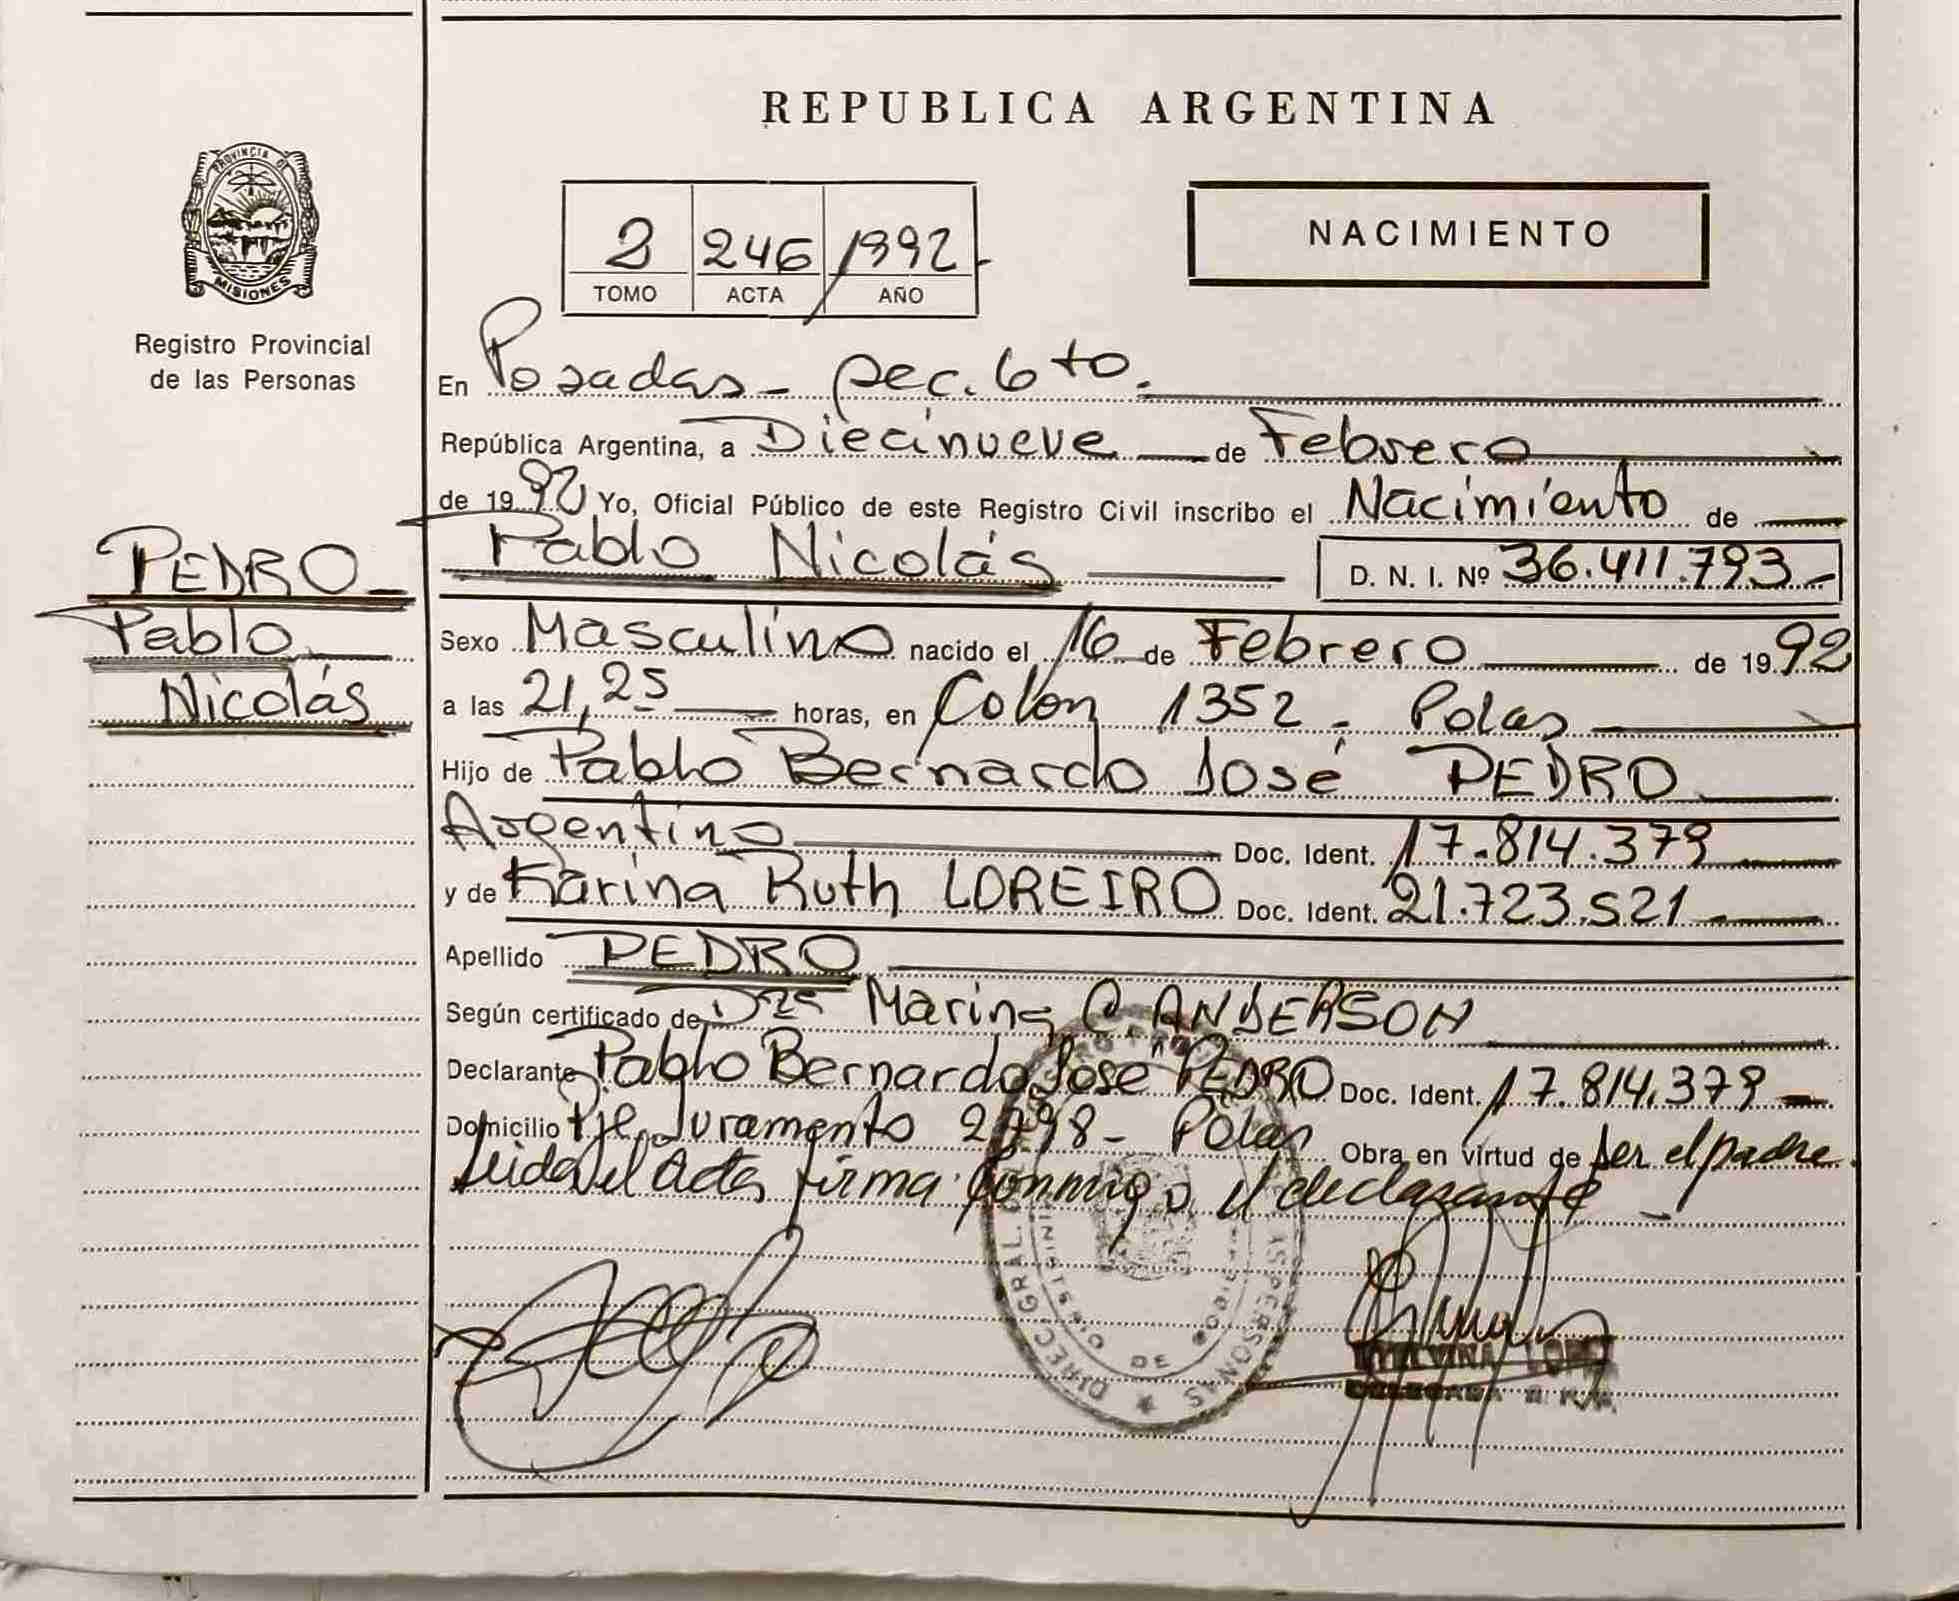 REPUBLICA ARGENTINA
PROVINCIA DE
MISIONES
Registro Provincial
de las Personas
2 246 1992
TOMO ACTA AÑO
NACIMIENTO
En Posadas - sec. 6to.
República Argentina, a Diecinueve de Febrero
de 1992 Yo, Oficial Público de este Registro Civil inscribo el Nacimiento de
Pablo Nicolás D. N. I. Nº 36.411.793
PEDRO
Pablo
Nicolás
Sexo Masculino nacido el 16 de Febrero de 1992
a las 21,25 horas, en Colon 1352 - Pdas
Hijo de Pablo Bernardo José PEDRO
Argentino Doc. Ident. 17.814.379
y de Karina Ruth LOREIRO Doc. Ident. 21.723.521
Apellido PEDRO
Según certificado de Dra Marina C. ANDERSON
Declarante Pablo Bernardo José PEDRO Doc. Ident. 17.814.379
Domicilio Pje Juramento 2798 - Pdas Obra en virtud de ser el padre.
Leida el Acta, firma conmigo el declarante
DIREC. GRAL. PERSONAS
DE